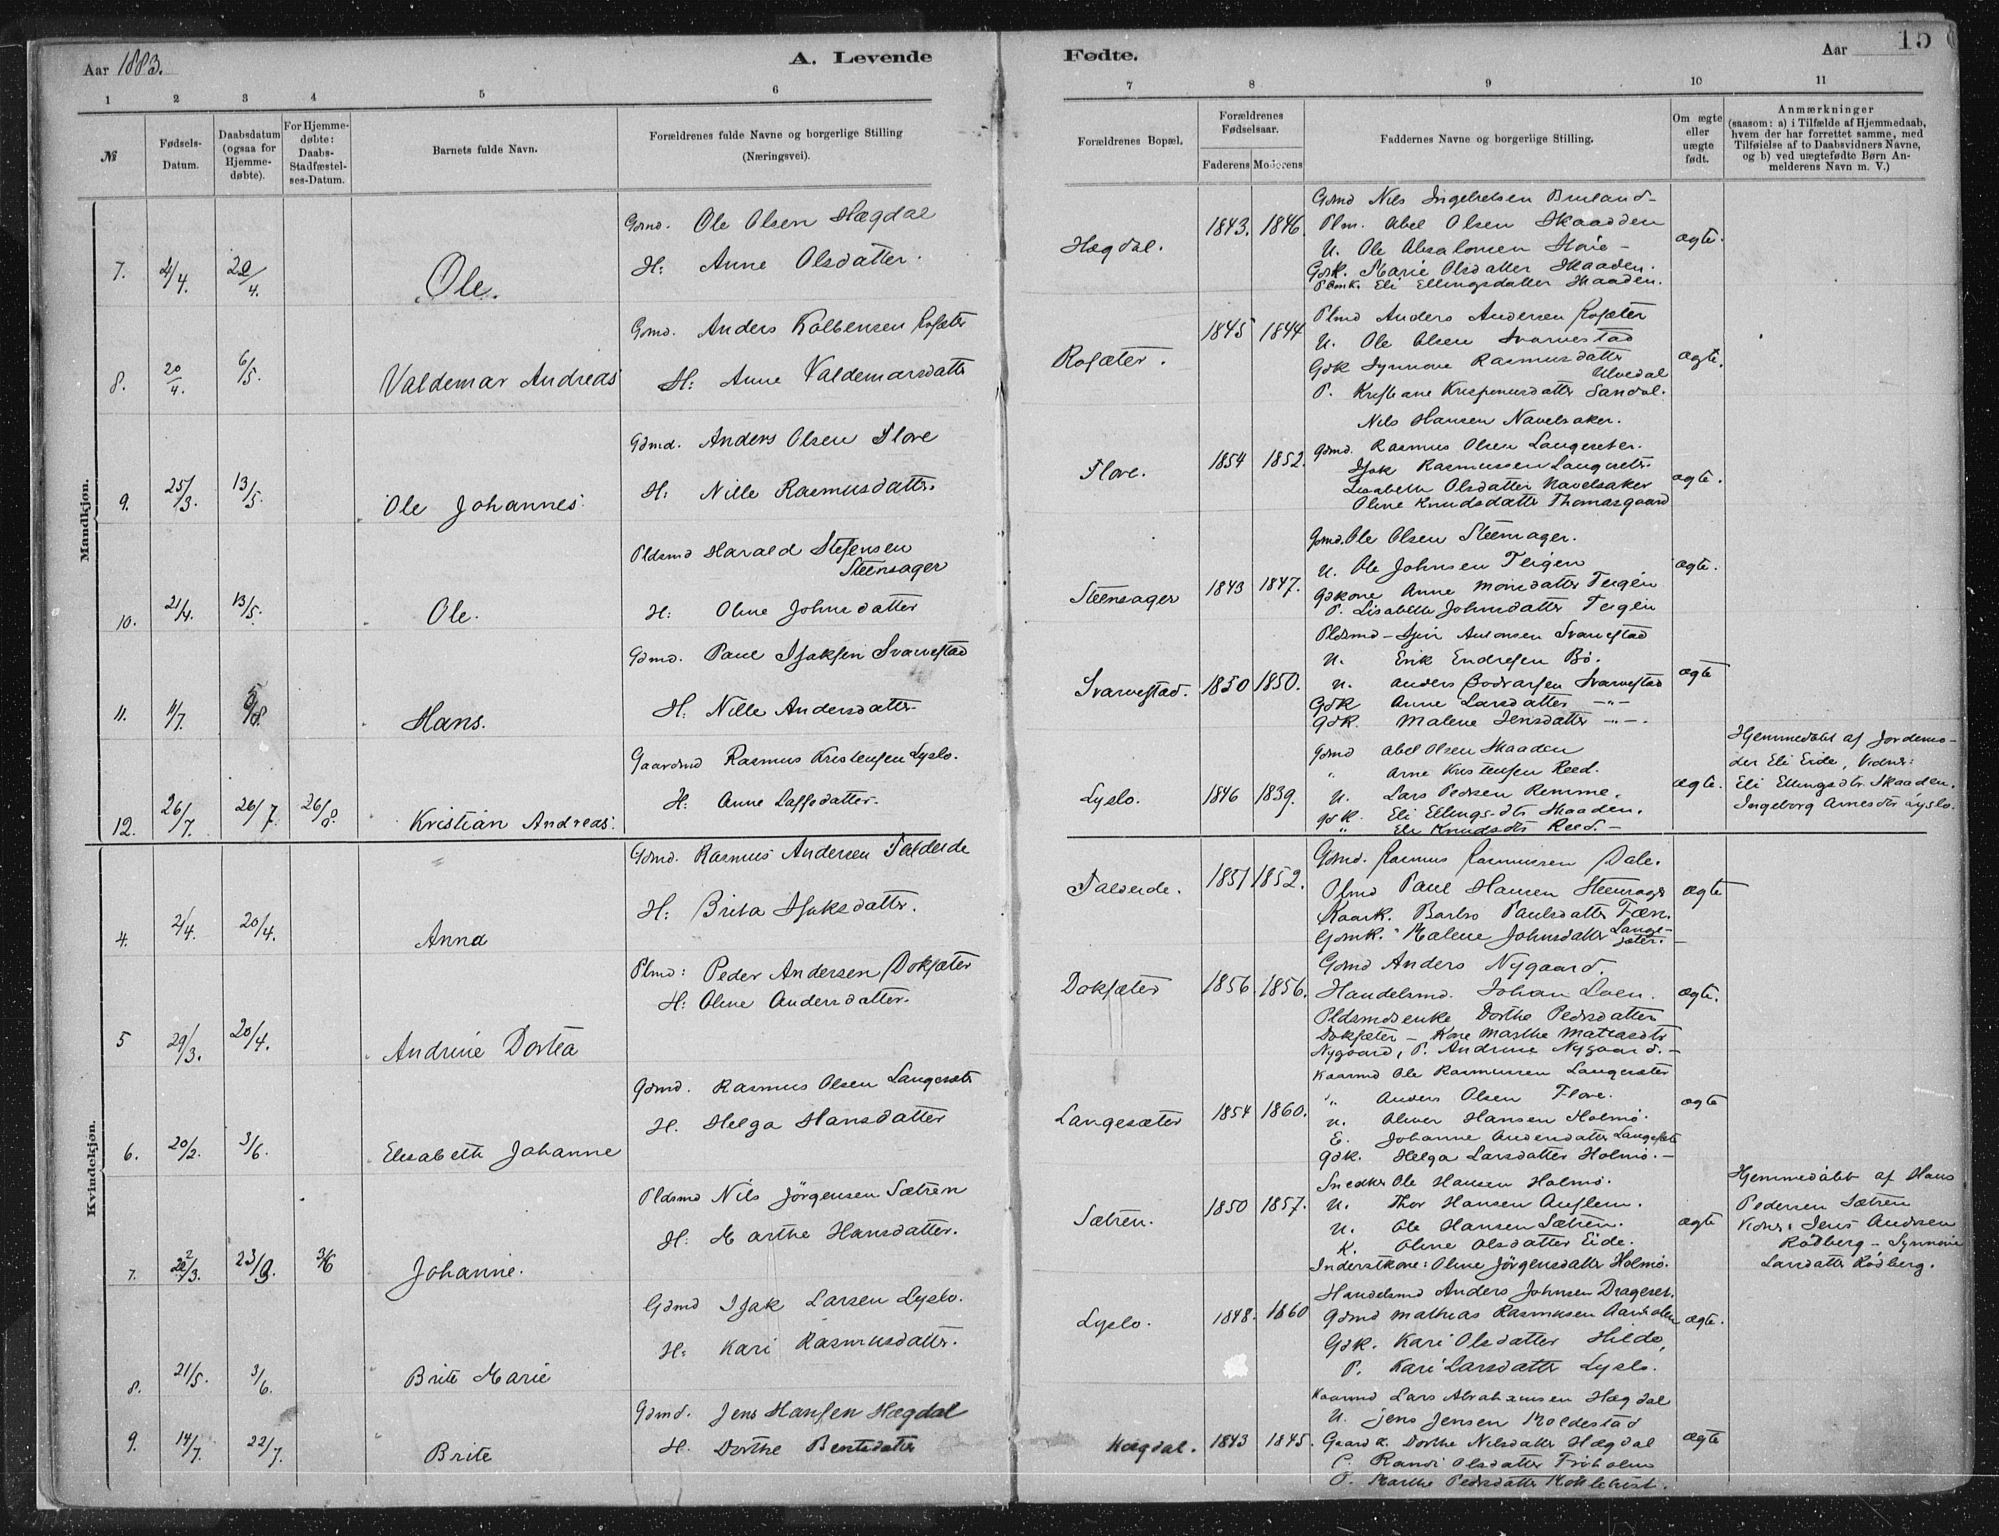 Aar 1883.
A. Levende
Fødte.
Aar
15
1 2 3 4 5 6 7 8 9 10 11
№
Fødsels-Datum.
Daabsdatum (ogsaa for Hjemme-døbte).
For Hjemme-døbte: Daabs-Stadfæstel-ses-Datum.
Barnets fulde Navn.
Forældrenes fulde Navne og borgerlige Stilling (Næringsvei).
Forældrenes Bopæl.
Forældrenes Fødselsaar.
Faderens Moderens
Faddernes Navne og borgerlige Stilling.
Om ægte eller uægte født.
Anmærkninger (saasom: a) i Tilfælde af Hjemmedaab, hvem der har forrettet samme, med Tilføielse af to Daabsvidners Navne, og b) ved uægtefødte Børn An-melderens Navn m. V.)
Mandkjøn.
7. 4/4. 22/4. Ole.
Gdmd. Ole Olsen Hægdal
H: Anne Olsdatter.
Hægdal. 1843. 1846. ægte.
Gdmd Nils Ingebretsen Bruland
Plm. Abel Olsen Skaaden
U. Ole Absalonsen
Gdsk. Marie Olsdatter Skaaden.
Eli Ellingsdatter Skaaden.
8. 20/4. 6/5. Valdemar Andreas
Gmd. Anders Kolbensen Rosæter
H: Anne Valdemarsdatter
Rosæter. 1845 1844 ægte.
Plmd Anders Andersen Rosæter
U. Ole Olsen Svarvestad
Gdk Synnøve Rasmusdatter
Ulvedal
P. Kristiane Krispinusdatter Sandal.
9. 25/3. 13/5. Ole Johannes
Gdmd. Anders Olsen Flore
H: Nille Rasmusdatter.
Flore. 1854 1852. ægte.
Nils Hansen Navelsaker.
Gdmd. Rasmus Olsen Langeseter.
Isak Rasmussen Langseter
Lisabeth Olsdatter Navelsaker
Oline Knudsdatter Thomasgaard
10. 21/4. 13/5. Ole.
Pldsmd Harald Stefensen
Steensager
H: Oline Johnsdatter
Steensager 1843 1847. ægte.
Gdmd. Ole Olsen Steensager.
U. Ole Johnsen Teigen
Gdkone Anne Monsdatter Teigen
P. Lisabeth Johnsdatter Teigen
11. 11/7. 5/8. Hans.
Gdmd. Paul Isaksen Svarvestad
H: Nille Andersdatter
Svarvestad. 1850 1850. ægte
Pldsmd - Antonsen Svarvestad
U. Erik Endresen Bø.
U. Anders Bodvarsen Svarvestad
Gdk Anne Larsdatter -"-
Gdk. Malene Jensdatter -"-
12. 26/7. 26/7. 26/8. Kristian Andreas.
Gaardmd Rasmus Kristensen Lyslo.
H: Anne Laffsdatter.
Lyslo. 1846 1839. ægte.
Gdmd Abel Olsen Skaaden
" Arne Kristensen Reed.
U. Lars Pedersen Remme.
Gdk. Eli Ellings-dtr Skaaden.
" Eli Knudsdtr Reed.
Hjemmedøbt af Jordemo-
der Eli Eide, Vidner:
Eli Ellingsdtr Skaaden.
Ingeborg Arnesdtr Lyslo.
Kvindekjøn.
4. 2/4. 20/4. Anna
Gdmd. Rasmus Andersen Taldeide
H: Brita Isaksdatter.
Taldeide. 1851 1852. ægte
Gdmd. Rasmus Rasmussen Dale.
Plmd Paul Hansen Steensager
Kaark. Barbro Paulsdatter Fæn.
Gdmk. Malene Johnsdatter Lange-
sæter.
5 29/3. 20/4. Andrine Dortea
Plmd: Peder Andersen Doksæter
H: Oline Andersdatter.
Doksæter 1856. 1856. ægte.
Gdmd Anders Nygaard.
Handelsmd. Johan Loen.
Pldsmdsenke Dorthe Pedersdatter
Doksæter - Kone Marthe Mathiasdtr
Nygaard, P. Andrine Nygaard.
6. 20/2. 3/6. Elisabeth Johanne
Gdmd. Rasmus Olsen Langesæter
H. Helga Hansdatter
Langesæter 1854 1860. ægte
Kaarmd Ole Rasmussen Langesæter
" Anders Olsen Flore.
U. Oliver Hansen Holmø.
E. Johanne Andersdatter Langesæter
Gdk. Helga Larsdatter Holmø.
7. 22/3. 23/3. 3/6 Johanne.
Pldsmd Nils Jørgensen Sætren
H: Marthe Hansdatter.
Sætren. 1850 1857. ægte
Snedker Ole Hansen Holmø.
U. Thor Hansen Auflem.
U. Ole Hansen Sætren.
K. Oline Olsdatter Eide.
Inderstkone: Oline Jørgensdatter Holmø.
Hjemmedøbt af Hans
Pedersen Sætren
Vidner: Jens Andersen
Rødberg - Synnøve
Larsdatter Rødberg.
8. 21/5. 3/6. Brite Marie
Gdmd Isak Larsen Lyslo.
H: Kari Rasmusdatter.
Lyslo. 1848. 1860 ægte.
Handelsmd Anders Johnsen Drageset.
Gdmd Mathias Rasmusen Aarholen
Gdk. Kari Olsdatter Hilde,
P. Kari Larsdatter Lyslo.
9. 14/7. 22/7. Brite
Gdmd. Jens Hansen Hægdal
H. Dorthe Bentsdatter
Hægdal. 1843 1845. ægte
Kaarmd Lars Abrahamsen Hægdal
U. Jens Jensen Moldestad
Gaardk. Dorthe Nilsdatter Hægdal
P. Randi Olsdatter Friholm
P. Marthe Pedersdatter